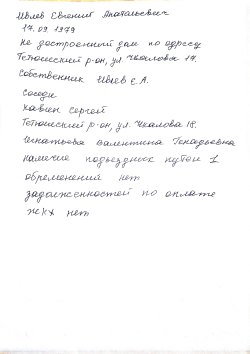 Ивлев Евгений Анатольевич
17.09 1979
не достроенный дом по адресу
Тетюшский р-он, ул. Чкалова 17.
Собственник Ивлев Е.А.
Соседи
Хавкин Сергей
Тетюшский р-он, ул. Чкалова 18.
Игнатьева Валентина Генадьевна
наличие подъездных путей 1
обременений нет
задолженностей по оплате
жкх нет